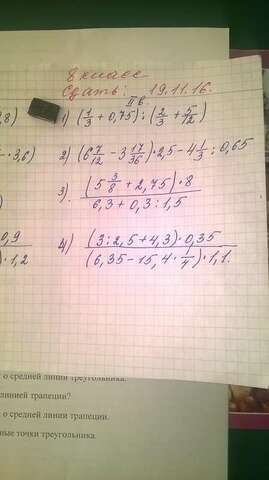 8 класс
Сдать: 19.11.16.
II в.
,8)
1) (1/3 + 0,75) : (2/3 + 5/12)
· 3,6)
2) (6 7/12 - 3 17/36) · 2,5 - 4 1/3 : 0,65
3). (5 3/8 + 2,75) · 8 / 6,3 + 0,3 : 1,5
0,9
) · 1,2
4) (3 : 2,5 + 4,3) · 0,35 / (6,35 - 15,4 · 1/4) · 1,1.
о средней линии треугольника.
линией трапеции?
о средней линии трапеции.
ные точки треугольника.